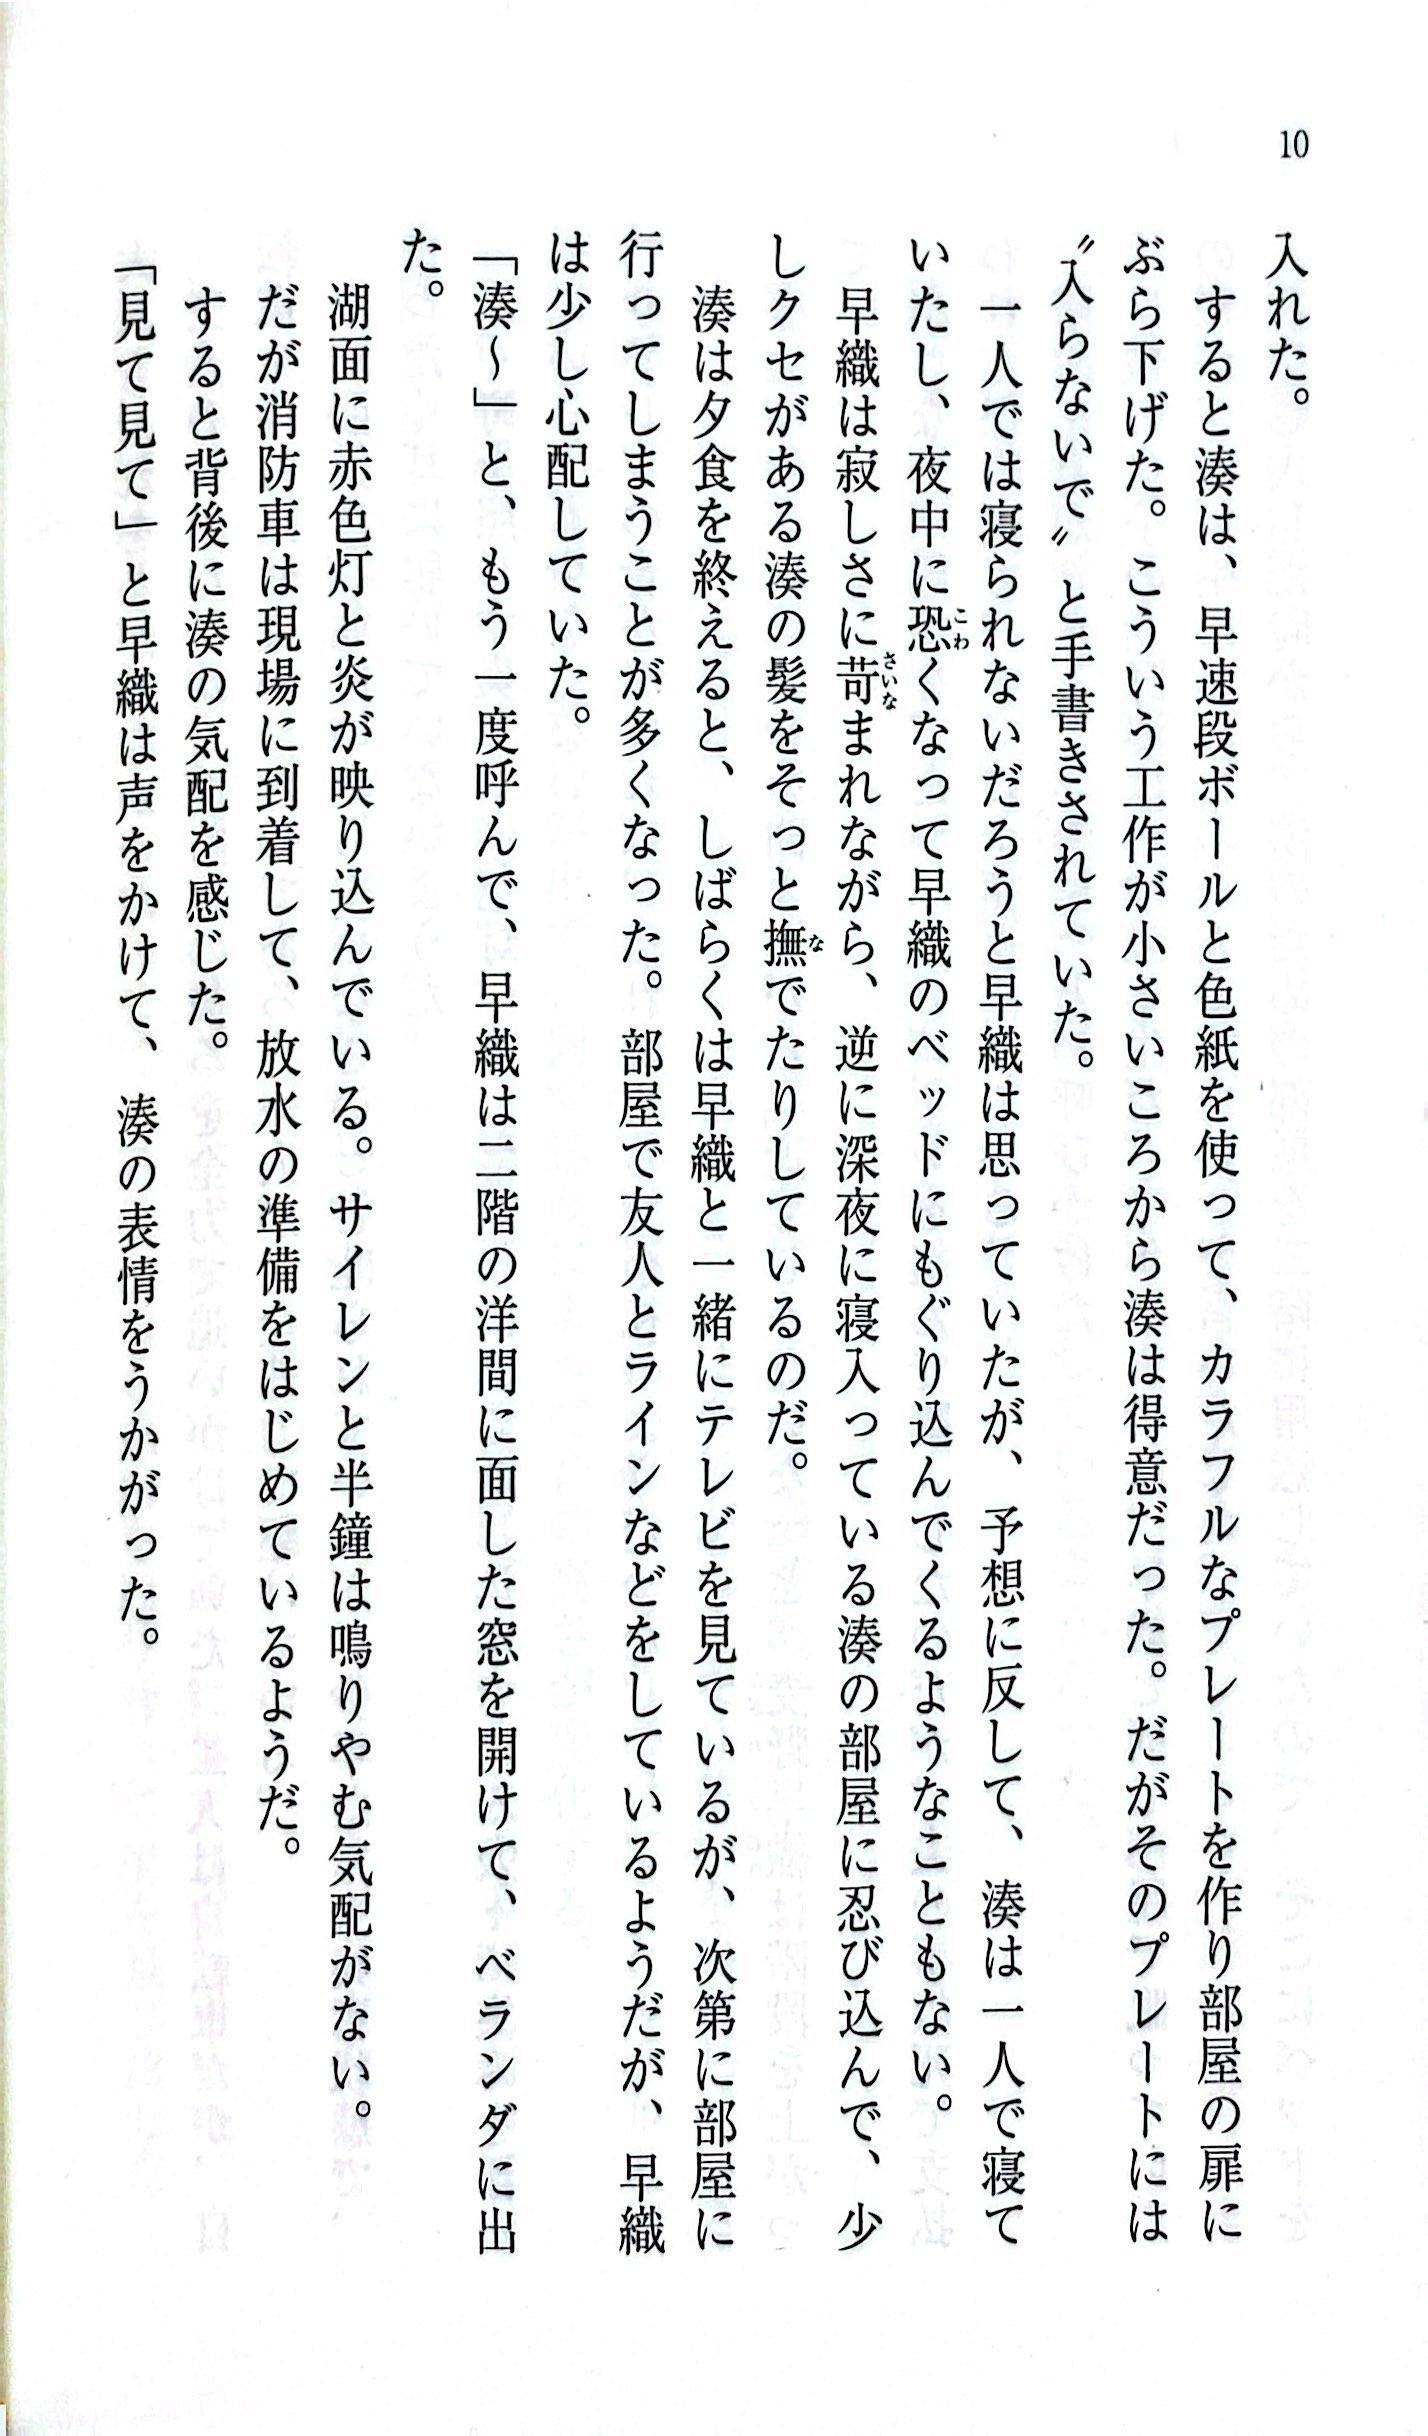 10
入れた。
　すると湊は、早速段ボールと色紙を使って、カラフルなプレートを作り部屋の扉に
ぶら下げた。こういう工作が小さいころから湊は得意だった。だがそのプレートには
〝入らないで〟と手書きされていた。
　一人では寝られないだろうと早織は思っていたが、予想に反して、湊は一人で寝て
いたし、夜中に恐くなって早織のベッドにもぐり込んでくるようなこともない。
　早織は寂しさに苛まれながら、逆に深夜に寝入っている湊の部屋に忍び込んで、少
しクセがある湊の髪をそっと撫でたりしているのだ。
　湊は夕食を終えると、しばらくは早織と一緒にテレビを見ているが、次第に部屋に
行ってしまうことが多くなった。部屋で友人とラインなどをしているようだが、早織
は少し心配していた。
「湊〜」と、もう一度呼んで、早織は二階の洋間に面した窓を開けて、ベランダに出
た。
　湖面に赤色灯と炎が映り込んでいる。サイレンと半鐘は鳴りやむ気配がない。
　だが消防車は現場に到着して、放水の準備をはじめているようだ。
　すると背後に湊の気配を感じた。
「見て見て」と早織は声をかけて、湊の表情をうかがった。